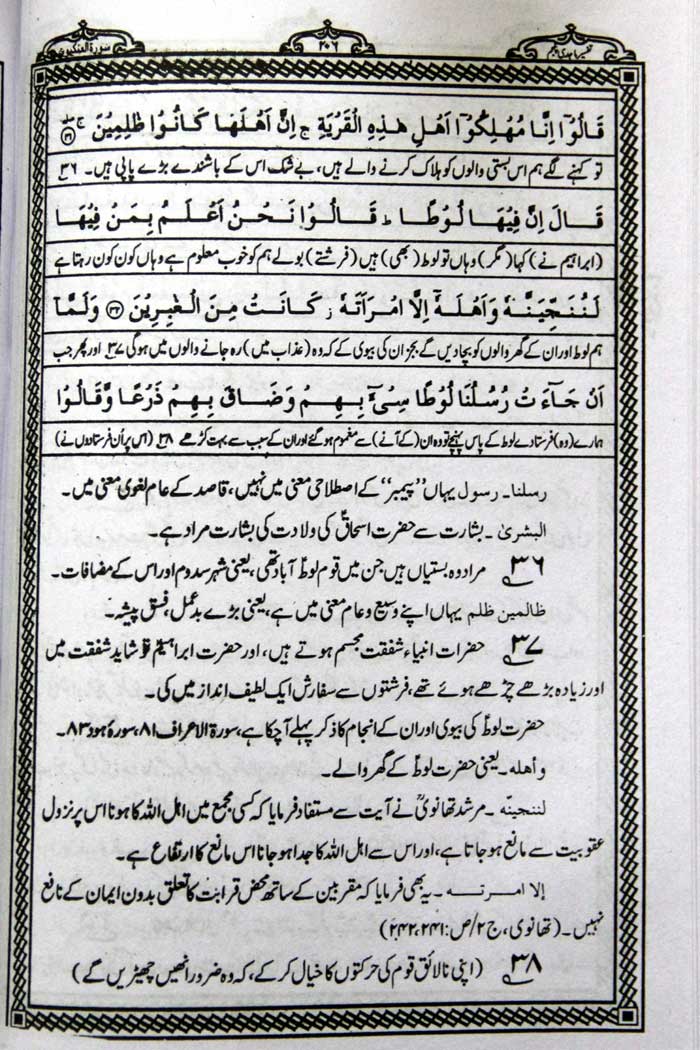 تفسیر ماجدی پنجم
۲۰۶
سورۃ العنکبوت
قَالُوْٓا اِنَّا مُهْلِكُوْٓا اَهْلِ هٰذِهِ الْقَرْيَةِ ج اِنَّ اَهْلَهَا كَانُوْا ظٰلِمِيْنَ ۳۱
تو کہنے لگے ہم اس بستی والوں کو ہلاک کرنے والے ہیں، بے شک اس کے باشندے بڑے پاپی ہیں۔ ۳۶
قَالَ اِنَّ فِيْهَا لُوْطًا ط قَالُوْا نَحْنُ اَعْلَمُ بِمَنْ فِيْهَا
(ابراہیم نے) کہا (مگر) وہاں تو لوط (بھی) ہیں (فرشتے) بولے ہم کو خوب معلوم ہے وہاں کون کون رہتا ہے
لَنُنَجِّيَنَّهٗ وَاَهْلَهٗٓ اِلَّا امْرَاَتَهٗ ز كَانَتْ مِنَ الْغٰبِرِيْنَ ۳۲ وَلَمَّآ
ہم لوط اور ان کے گھر والوں کو بچا دیں گے بجز ان کی بیوی کے کہ وہ (عذاب میں) رہ جانے والوں میں ہوگی ۳۷ اور پھر جب
اَنْ جَآءَتْ رُسُلُنَا لُوْطًا سِيْٓءَ بِهِمْ وَضَاقَ بِهِمْ ذَرْعًا وَّقَالُوْا
ہمارے (وہ) فرستادے لوط کے پاس پہنچے تو وہ ان (کے آنے) سے مغموم ہو گئے اور ان کے سبب سے بہت کڑھے ۳۸ (اس پر اُن فرستادوں نے)
رسلنا۔ رسول یہاں ”پیمبر“ کے اصطلاحی معنی میں نہیں، قاصد کے عام لغوی معنی میں۔
البشریٰ۔ بشارت سے حضرت اسحاقؑ کی ولادت کی بشارت مراد ہے۔
۳۶ مراد وہ بستیاں ہیں جن میں قوم لوط آباد تھی، یعنی شہر سدوم اور اس کے مضافات۔
ظالمین ظلم یہاں اپنے وسیع و عام معنی میں ہے، یعنی بڑے بدعمل، فسق پیشہ۔
۳۷ حضرات انبیاء شفقت مجسم ہوتے ہیں، اور حضرت ابراہیمؑ تو شاید شفقت میں
اور زیادہ بڑھے چڑھے ہوئے تھے، فرشتوں سے سفارش ایک لطیف انداز میں کی۔
حضرت لوطؑ کی بیوی اور ان کے انجام کا ذکر پہلے آچکا ہے، سورۃ الاعراف ۸۱، سورۂ ہود ۸۳۔
و أهله۔ یعنی حضرت لوطؑ کے گھر والے۔
لننجینه۔ مرشد تھانویؒ نے آیت سے مستفاد فرمایا کہ کسی مجمع میں اہل اللہ کا ہونا اس پر نزول
عقوبیت سے مانع ہو جاتا ہے، اور اس سے اہل اللہ کا جدا ہو جانا اس مانع کا ارتفاع ہے۔
إلا امرته۔ یہ بھی فرمایا کہ مقربین کے ساتھ محض قرابت کا تعلق بدون ایمان کے نافع
نہیں۔ (تھانوی، ج ۲/ص: ۲۴۲،۲۴۱)
۳۸ (اپنی نالائق قوم کی حرکتوں کا خیال کرکے، کہ وہ ضرور انھیں چھیڑیں گے)